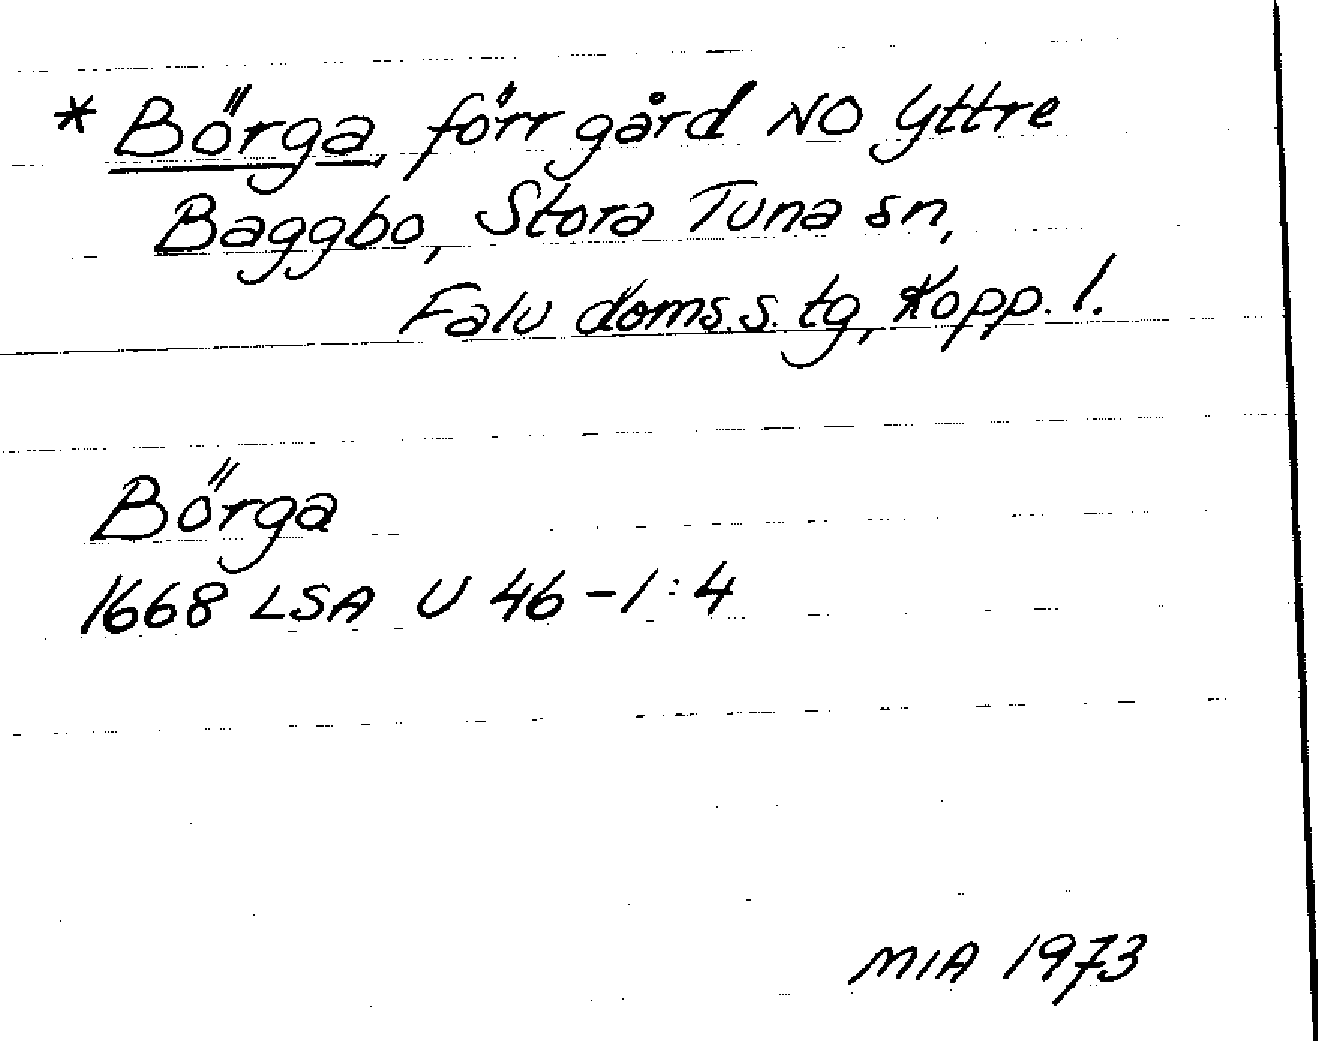 * Börga, förr gård NO Yttre
Baggbo, Stora Tuna sn,
Falu doms.s. tg, Kopp. l.
Börga
1668 LSA U 46-1:4
MIA 1973